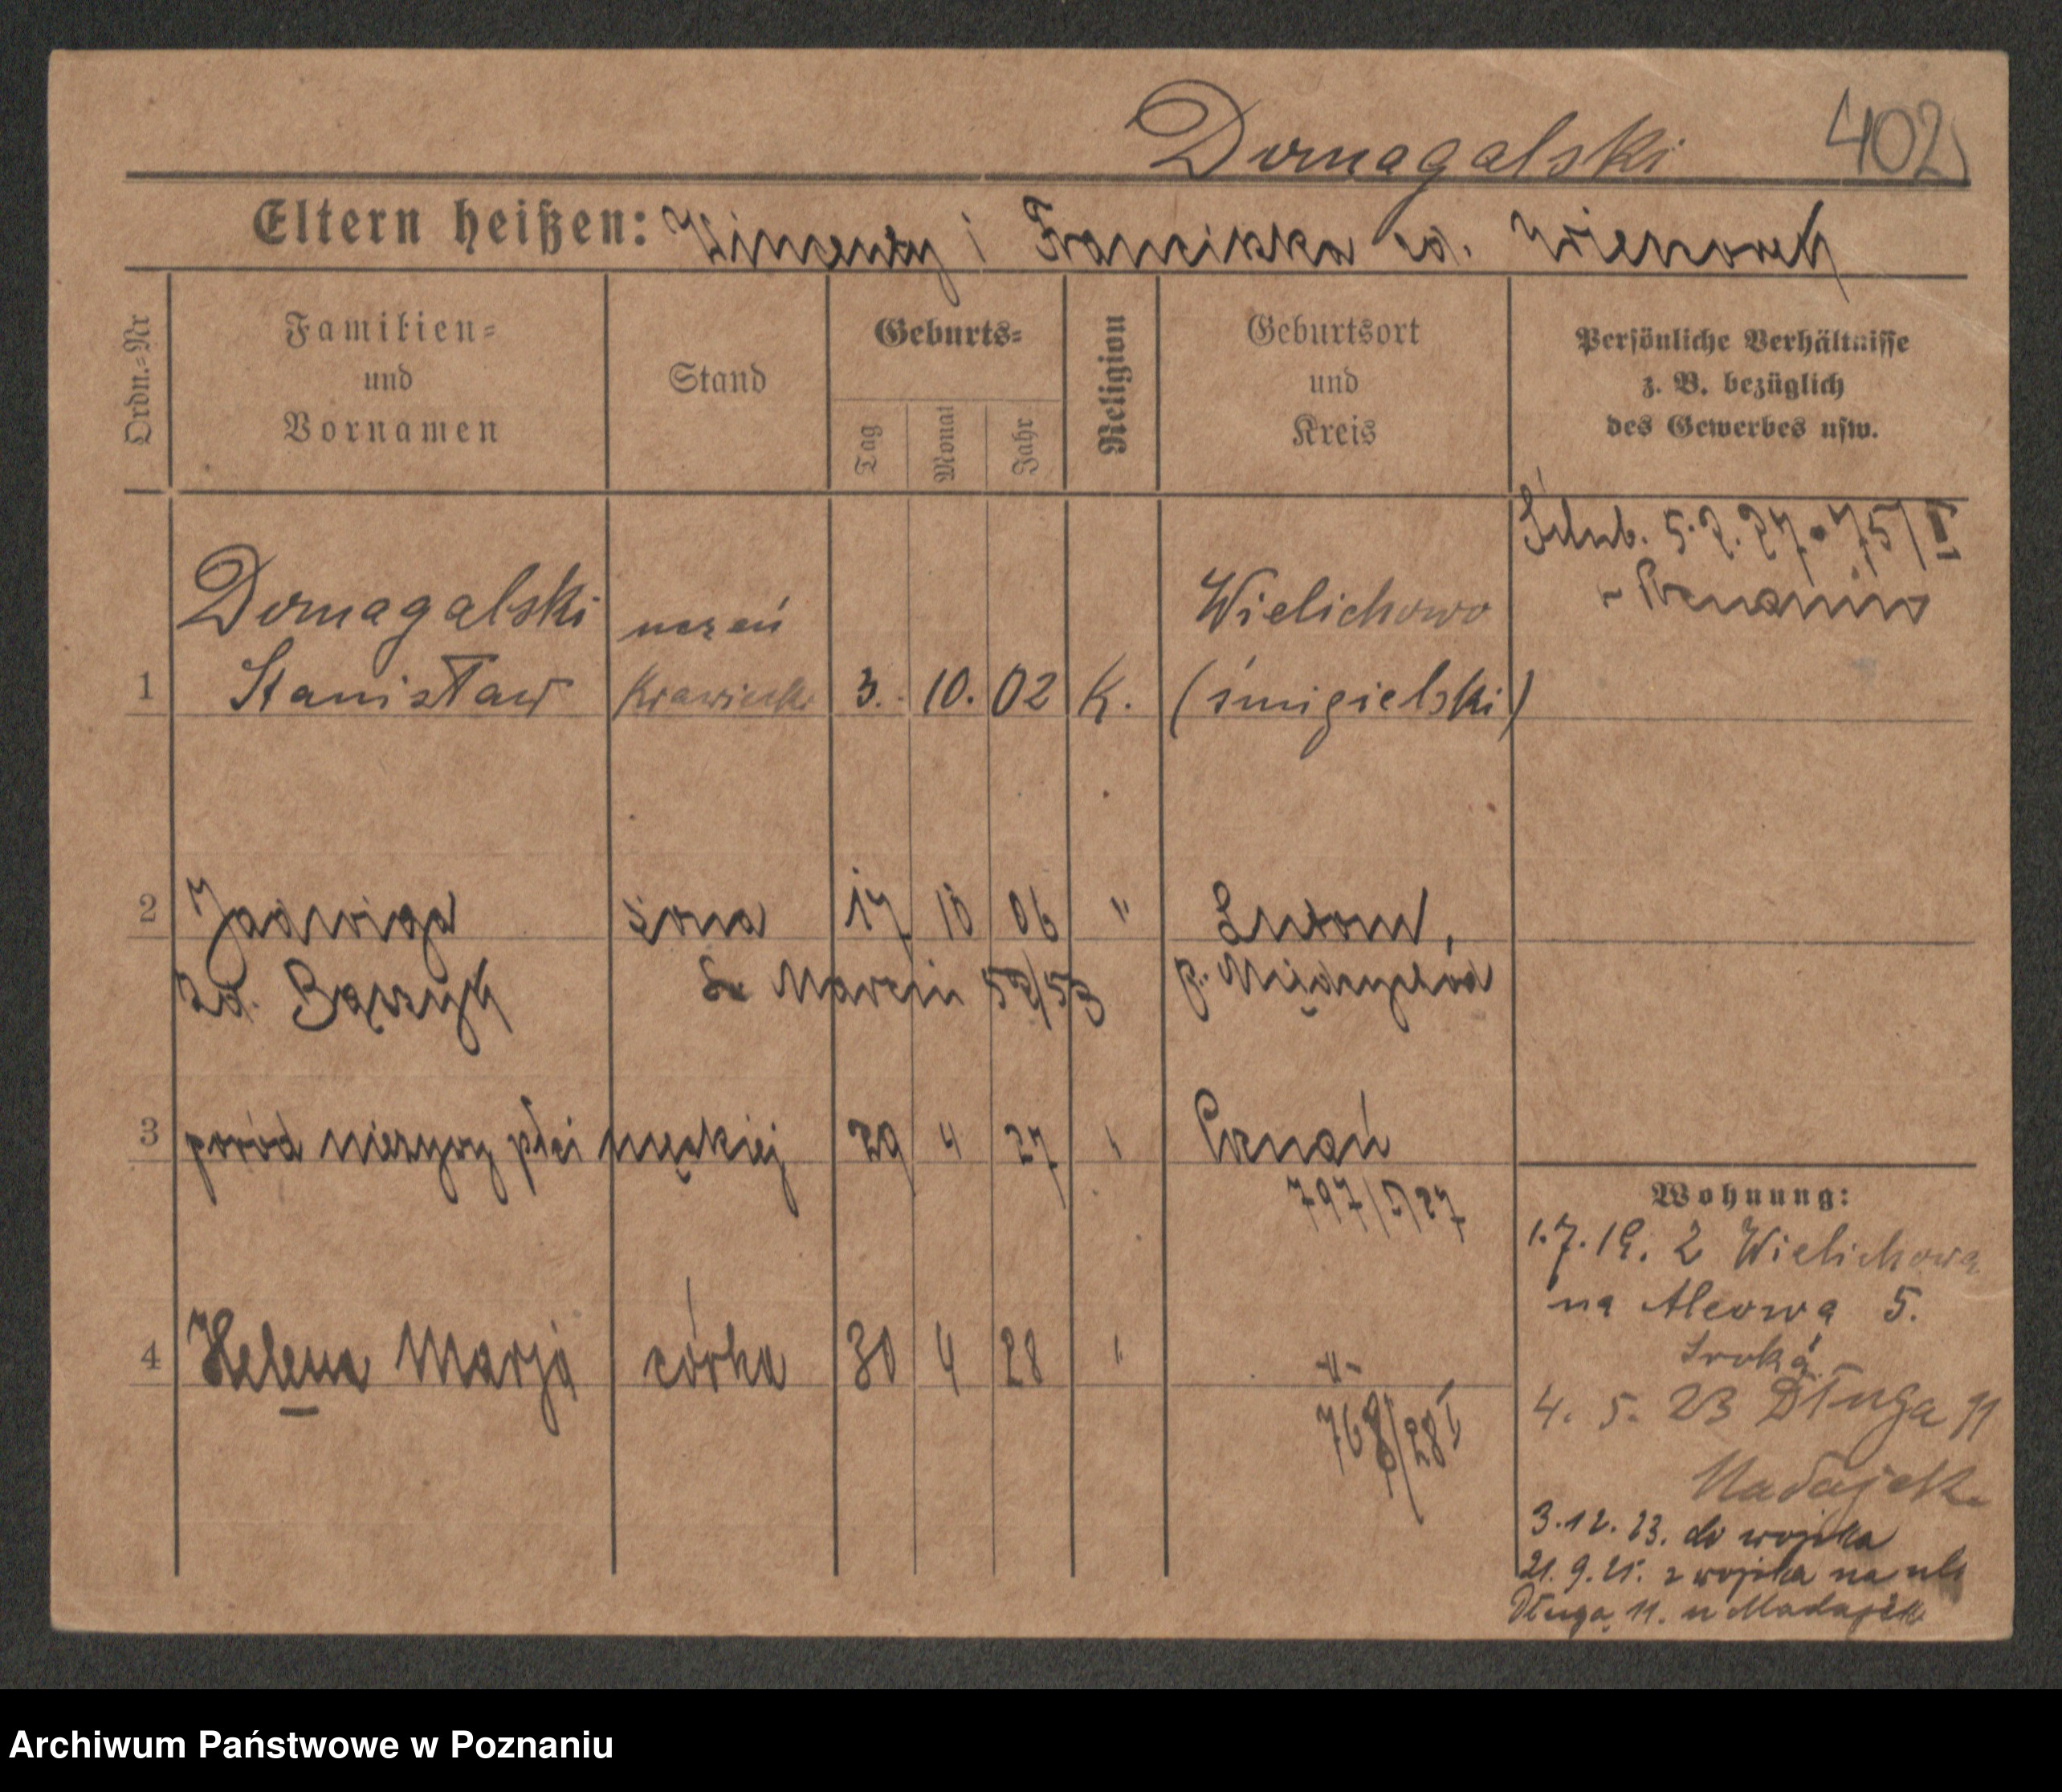 Domagalski 402
Eltern heißen: Wincenty i Franciszka zd.
Ordn.=Nr
Familien=
und
Vornamen
Stand
Geburts=
Tag
Monat
Jahr
Religion
Geburtsort
und
Kreis
Persönliche Verhältnisse
z. B. bezüglich
des Gewerbes usw.
Ślub. 5.2.27. 75/I
w Poznaniu
Domagalski uczeń Wielichowo
1 Stanisław krawiecki 3. 10. 02 K. (śmigielski)
2 Jadwiga żona 17 10 06 " Lutom,
zd. Bączyk Św Marcin 52/53 p. Międzychód
3 poród nieżywy płci męskiej 29 4 27 " Poznań
797/5/27
4 Helena Marja córka 30 4 28 " -"-
768/28 I
Wohnung:
1.7.19. z Wielichowa
na 5.
Sroka
4. 5. 23 Długa 11
Madajek
3.12.23. do wojska
21.9.25. z wojska na ul.
Długą 11. u Madajek
Archiwum Państwowe w Poznaniu